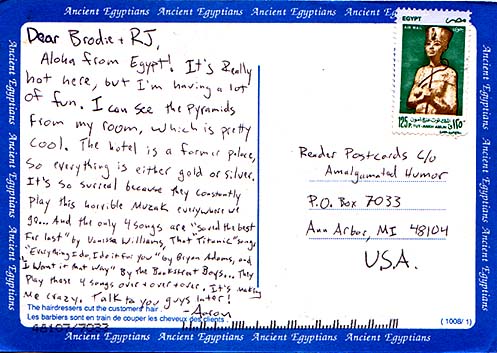 Ancient Egyptians Ancient Egyptians Ancient Egyptians Ancient Egyptians Ancient Egyptians
Dear Brodie + RJ,
Aloha from Egypt! It's Really
hot here, but I'm having a lot
of fun. I can see the Pyramids
from my room, which is pretty
cool. The hotel is a former palace,
so everything is either gold or silver.
It's so surreal because they constantly
play this horrible Muzak everywhere we
go... And the only 4 songs are "Saved the best
For last" by Vanessa Williams, That Titanic song
"Everything I do, I do it for you" by Bryan Adams, and
"I Want it that way" By the Backstreet Boys... They
Play these 4 songs over + over + over. It's making
Me crazy. Talk to you guys later!
- Aaron
The hairdressers cut the customers' hair
Les barbiers sont en train de couper les cheveux des clients
48107/7033
EGYPT
مصر
AIR MAIL
125 P.
TUT-ANKH-AMUN
١٢٥
Reader Postcards c/o
Amalgamated Humor
P.O. Box 7033
Ann Arbor, MI 48104
USA.
(1008/1)
Ancient Egyptians Ancient Egyptians Ancient Egyptians Ancient Egyptians Ancient Egyptians
Ancient Egyptians Ancient Egyptians Ancient Egyptians
Ancient Egyptians Ancient Egyptians Ancient Egyptians